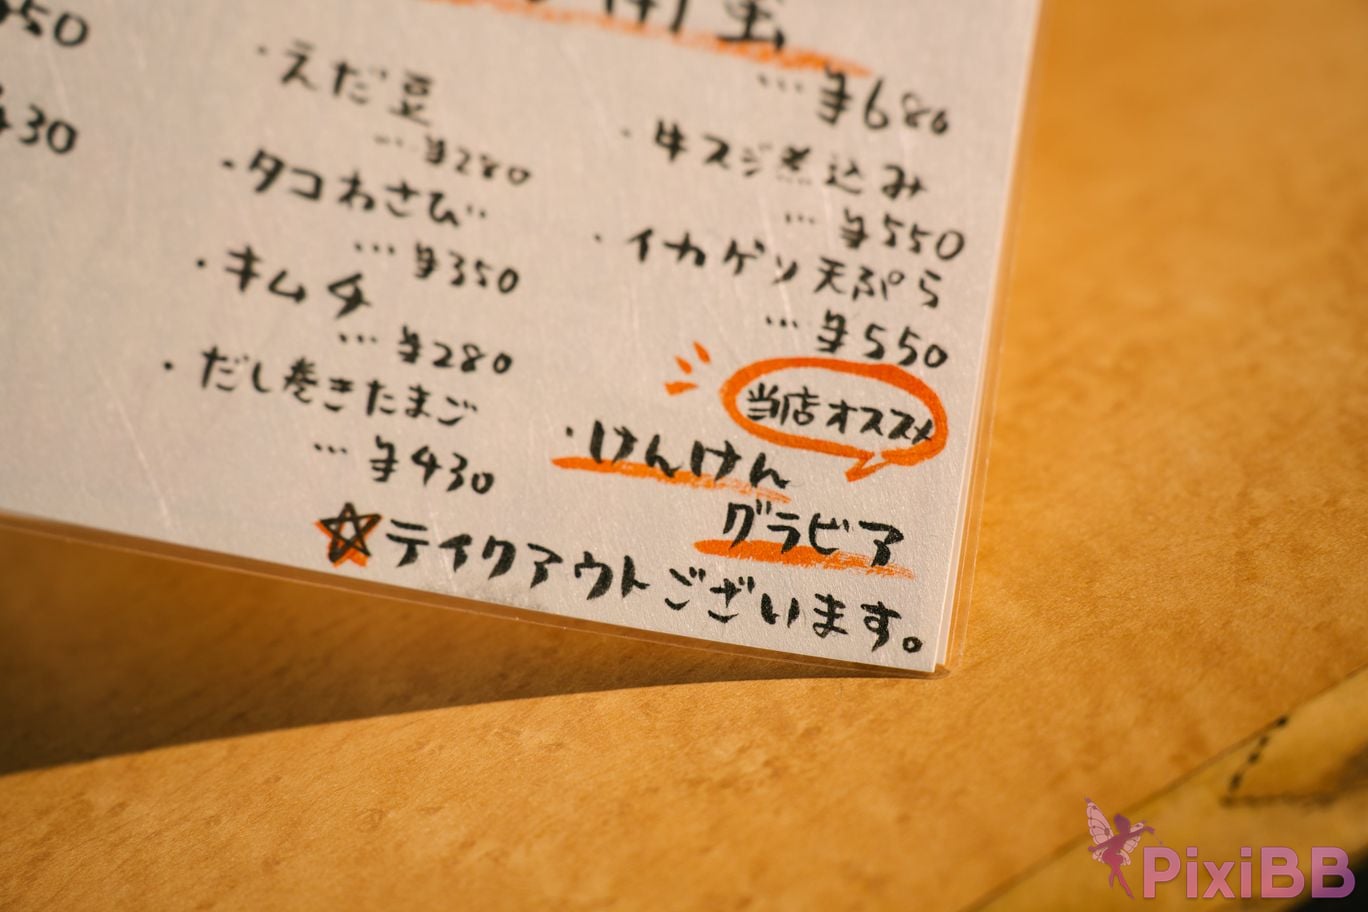 ・えだ豆
… ¥280
・タコわさび
… ¥350
・キムチ
… ¥280
・だし巻きたまご
… ¥430
… ¥680
・牛スジ煮込み
… ¥550
・イカゲソ天ぷら
… ¥550
当店オススメ
・けんけん
グラビア
☆テイクアウトございます。
PixiBB